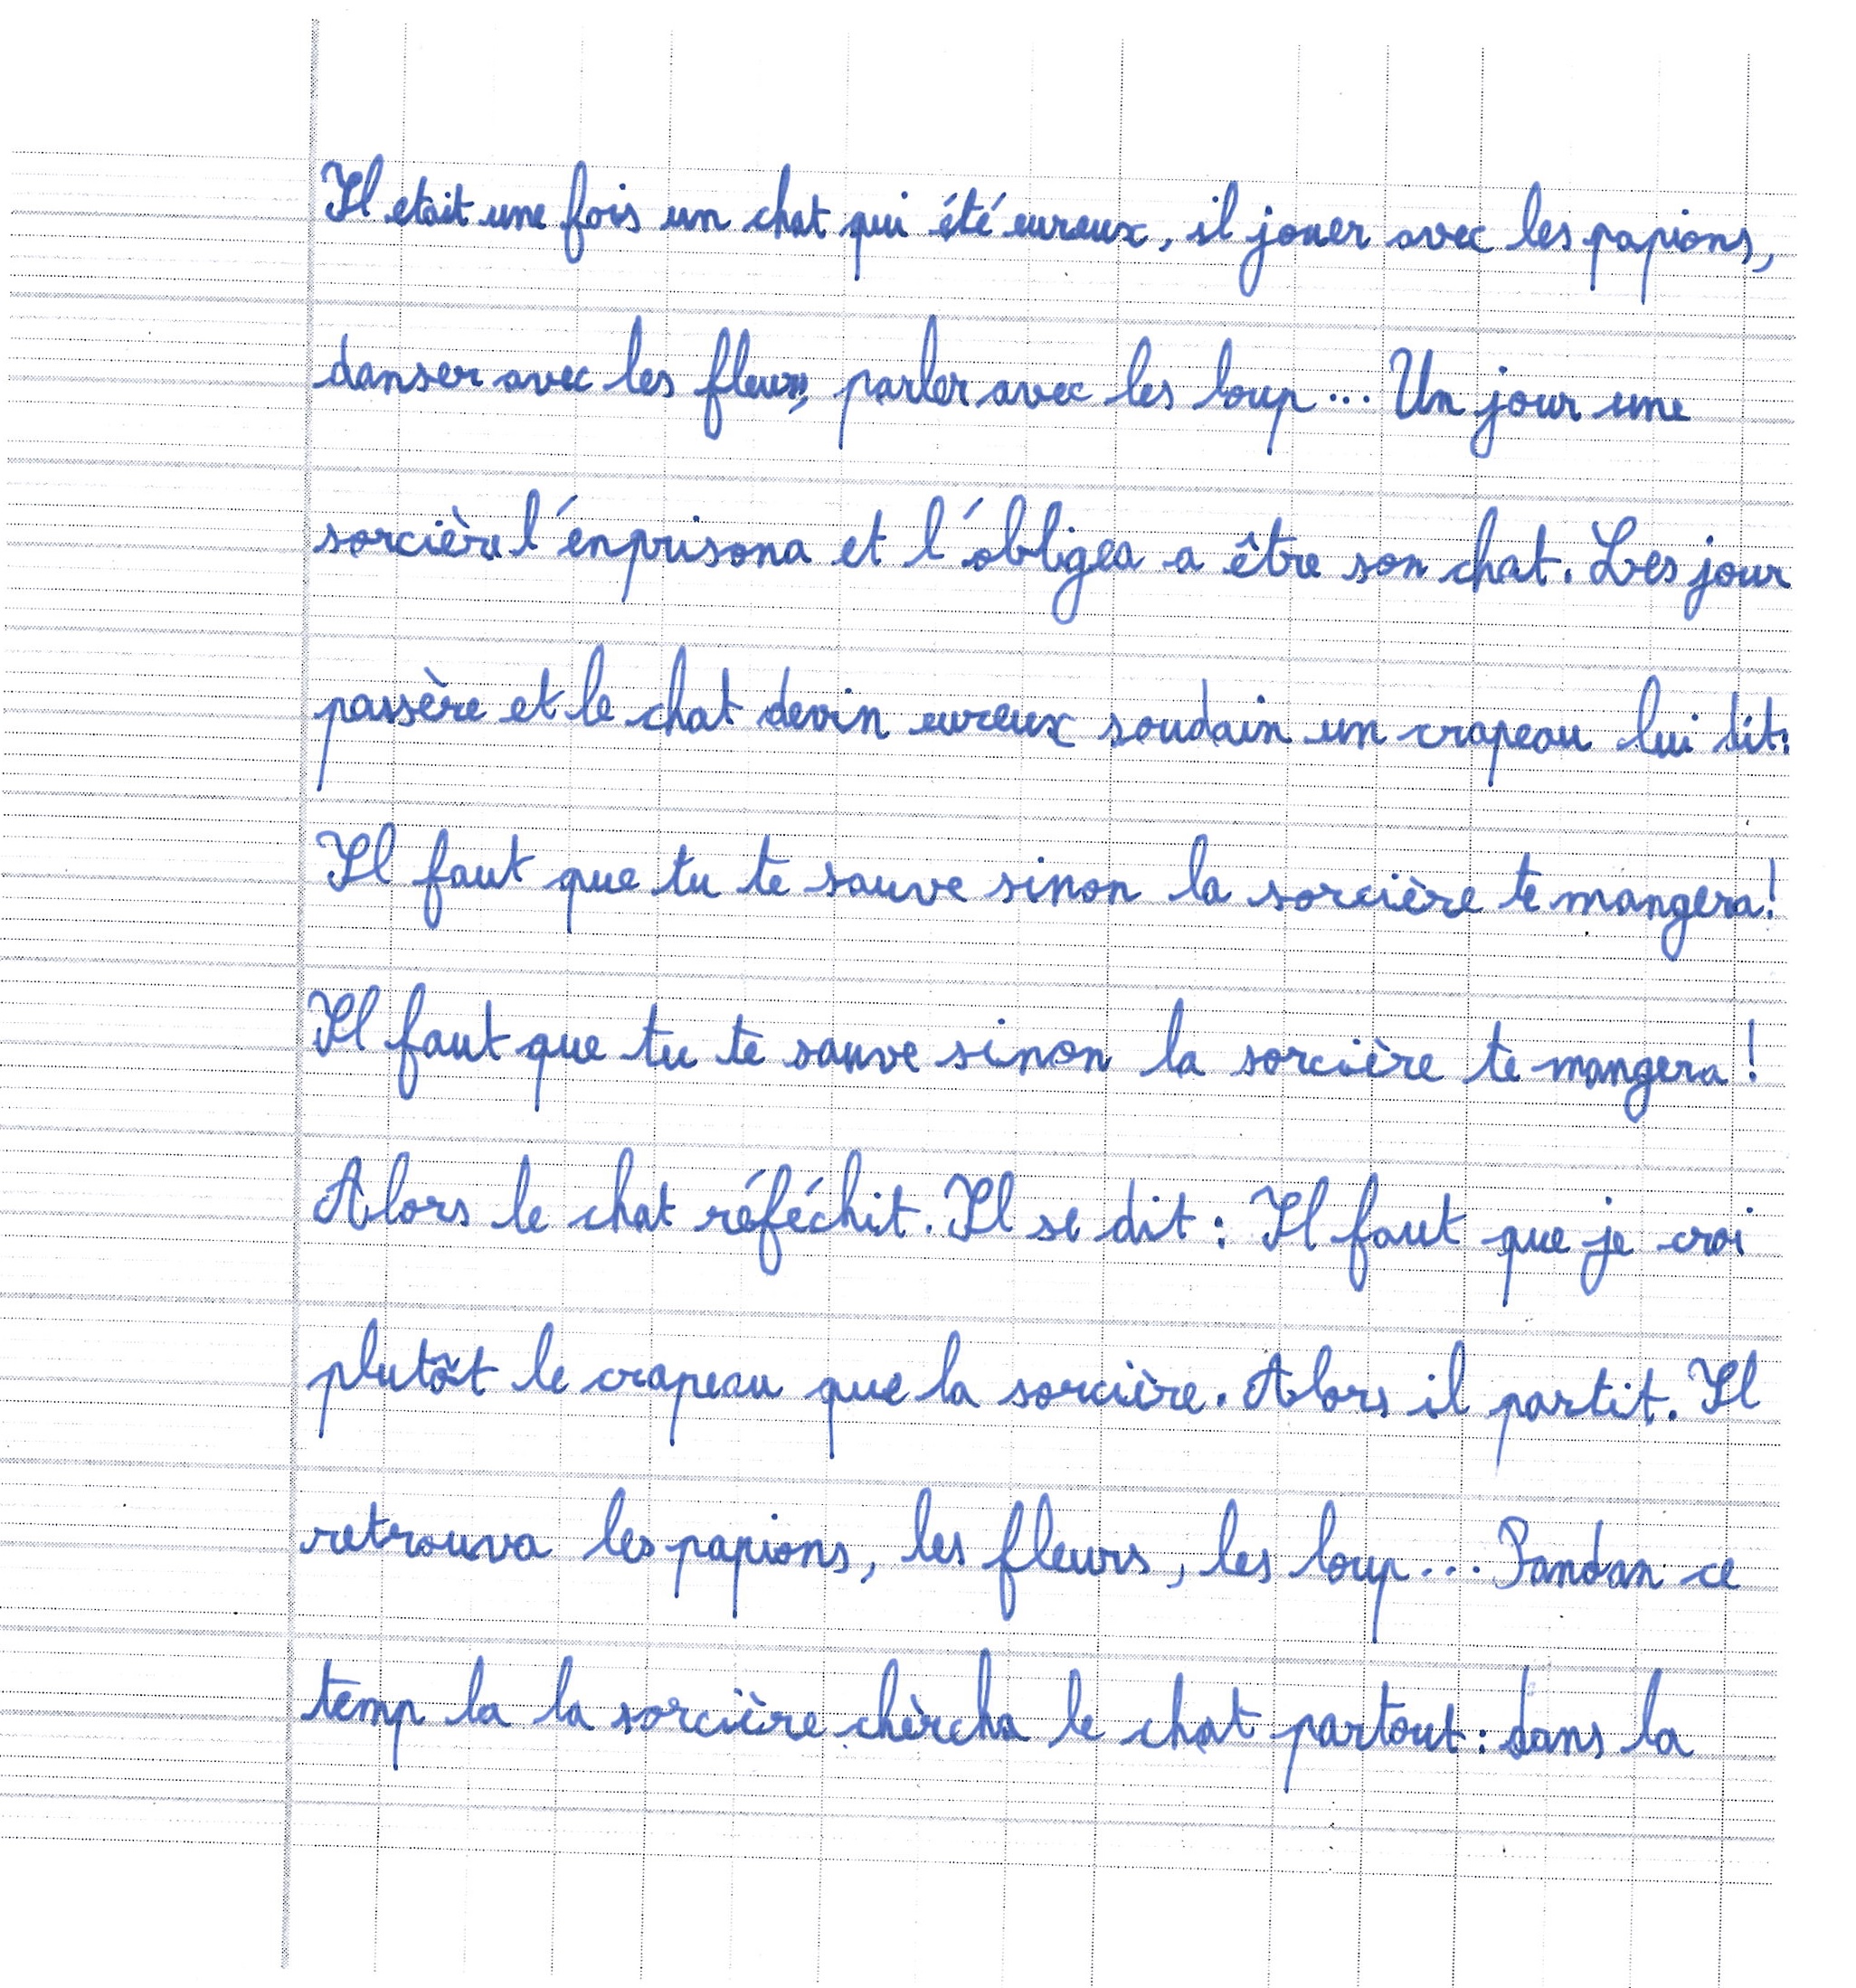 Il etait une fois un chat qui été eureux, il jouer avec les papions,
danser avec les fleurs, parler avec les loup... Un jour une
sorcière l'enprisona et l'obligea a être son chat. Les jour
passère et le chat devin eureux soudain un crapeau lui dit:
Il faut que tu te sauve sinon la sorcière te mangera!
Il faut que tu te sauve sinon la sorcière te mangera !
Alors le chat réféchit. Il se dit : Il faut que je croi
plutôt le crapeau que la sorcière. Alors il partit. Il
retrouva les papions, les fleurs, les loup... Pandan ce
temp la la sorcière chèrcha le chat partout : dans la